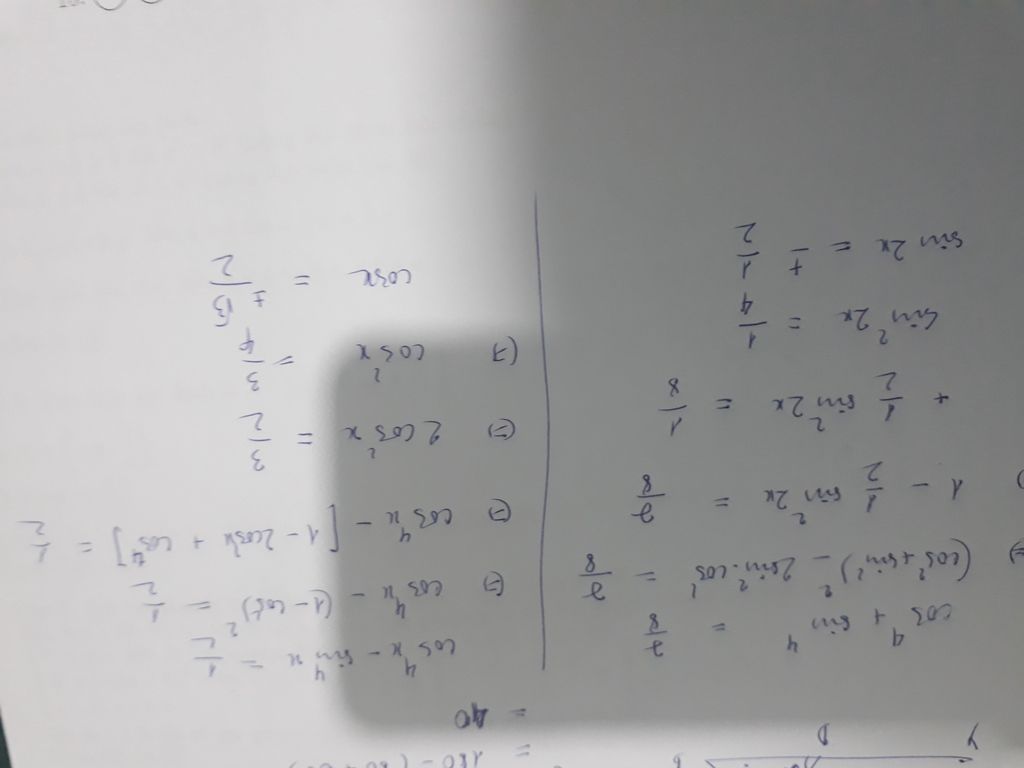 Y D
= 40
cos⁴ + sin⁴ = 7/8
=) (cos² + sin²)² - 2sin².cos² = 7/8
) 1 - 1/2 sin²2x = 7/8
+ 1/2 sin²2x = 1/8
sin²2x = 1/4
sin 2x = ± 1/2
cos⁴x - sin⁴x = 1/2
(=) cos⁴x - (1 - cos²)² = 1/2
(=) cos⁴x - [1 - 2cos²x + cos⁴] = 1/2
(=) 2cos²x = 3/2
(=) cos²x = 3/4
cosx = ±√3/2